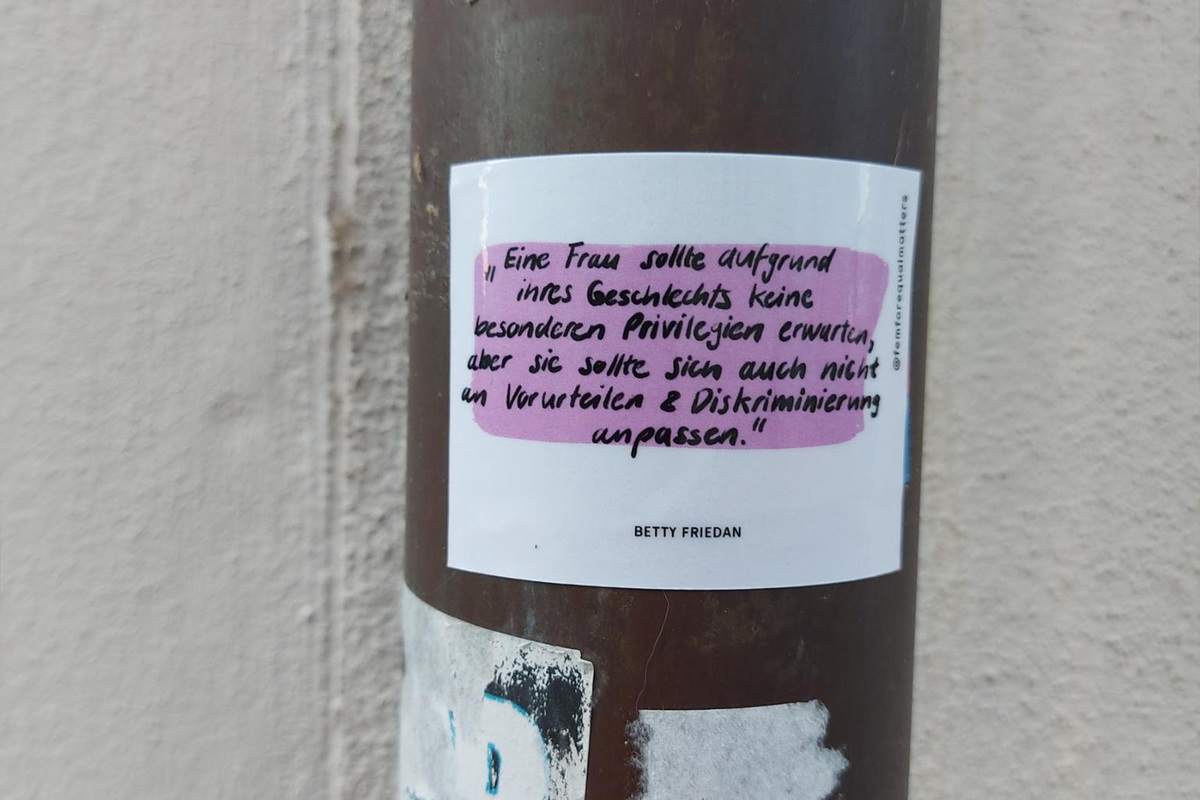 „Eine Frau sollte aufgrund
ihres Geschlechts keine
besonderen Privilegien erwarten,
aber sie sollte sich auch nicht
an Vorurteilen & Diskriminierung
anpassen."
BETTY FRIEDAN
@femforequalmatters
D